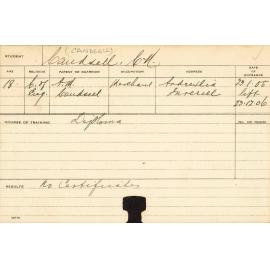 (CANDSELL)
STUDENT
Caudsell, C.H.
AGE RELIGION PARENT OR GUARDIAN OCCUPATION ADDRESS DATE OF ENTRANCE
18 C. of A.H. Merchant 23.1.05
Eng. Caudsell Inverell left
23.12.06
COURSE OF TRAINING
Diploma
RESULTS No Certificates